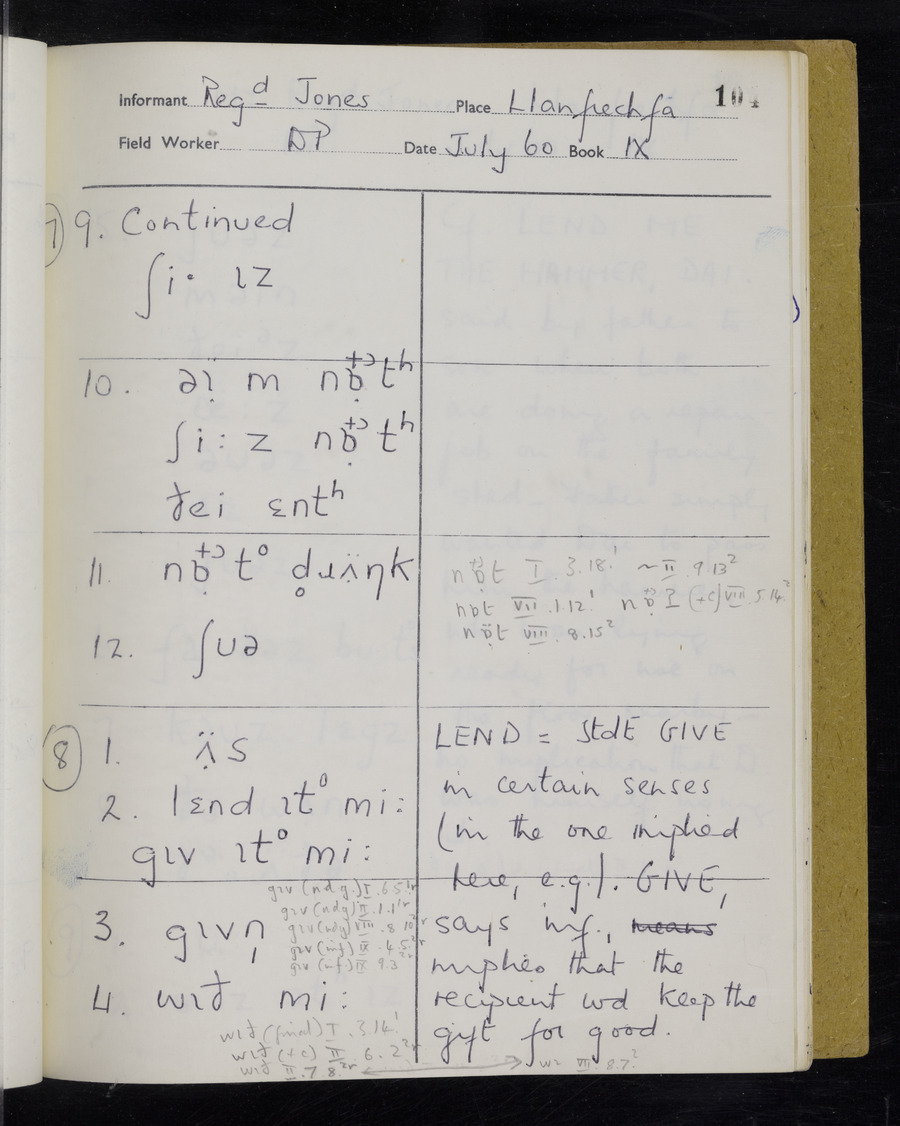 Informant Regd Jones Place Llanfrechfa 104
Field Worker DP Date July 60 Book IX
7) 9. Continued
ʃi· ɪz
10. əɪ̣ m nɒ̣tʰ
ʃi: z nɒ̣tʰ
ðei ɛntʰ
11. nɒ̣t° d̥ɹʌ̈ŋk
nɒ̣t I 3.18.1 ~ II.9 13²
nɒt VII.1.12! (+c) VIII.5.14.²
nɒ̣t VIII 8.15²
12. ʃuə
8 1. ʌ̣̈s
2. lɛnd ɪt° mi:
gɪv ɪt° mi:
LEND = StdE GIVE
in certain senses
(in the one implied
here, e.g.). GIVE,
says inf., means
implies that the
recipient wd keep the
gift for good.
gɪv (ndg.) I.6.5
gɪv (ndg) II.1.1
gɪv (ndg) VIII.8 10
gɪv (inf) IX.4.5
gɪv (inf.) IX 9.3
3. gɪvn̩
4. wɪð mi:
wɪð (final) I.3.14!
wɪð (+c) II.6.2
wɪð II.7 8.
wɪ VII.8.7.²